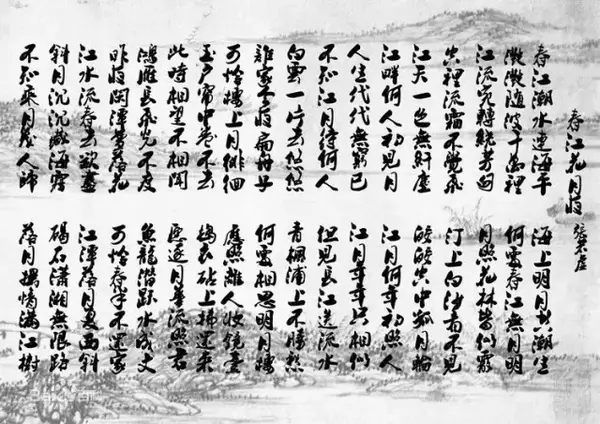 春江花月夜
張若虛
春江潮水連海平 海上明月共潮生
灩灩隨波千萬裡 何處春江無月明
江流宛轉繞芳甸 月照花林皆似霰
空裡流霜不覺飛 汀上白沙看不見
江天一色無纖塵 皎皎空中孤月輪
江畔何人初見月 江月何年初照人
人生代代無窮已 江月年年只相似
不知江月待何人 但見長江送流水
白雲一片去悠悠 青楓浦上不勝愁
誰家今夜扁舟子 何處相思明月樓
可憐樓上月徘徊 應照離人妝鏡臺
玉戶簾中卷不去 搗衣砧上拂還來
此時相望不相聞 願逐月華流照君
鴻雁長飛光不度 魚龍潛躍水成文
昨夜閑潭夢落花 可憐春半不還家
江水流春去欲盡 江潭落月復西斜
斜月沉沉藏海霧 碣石瀟湘無限路
不知乘月幾人歸 落月搖情滿江樹